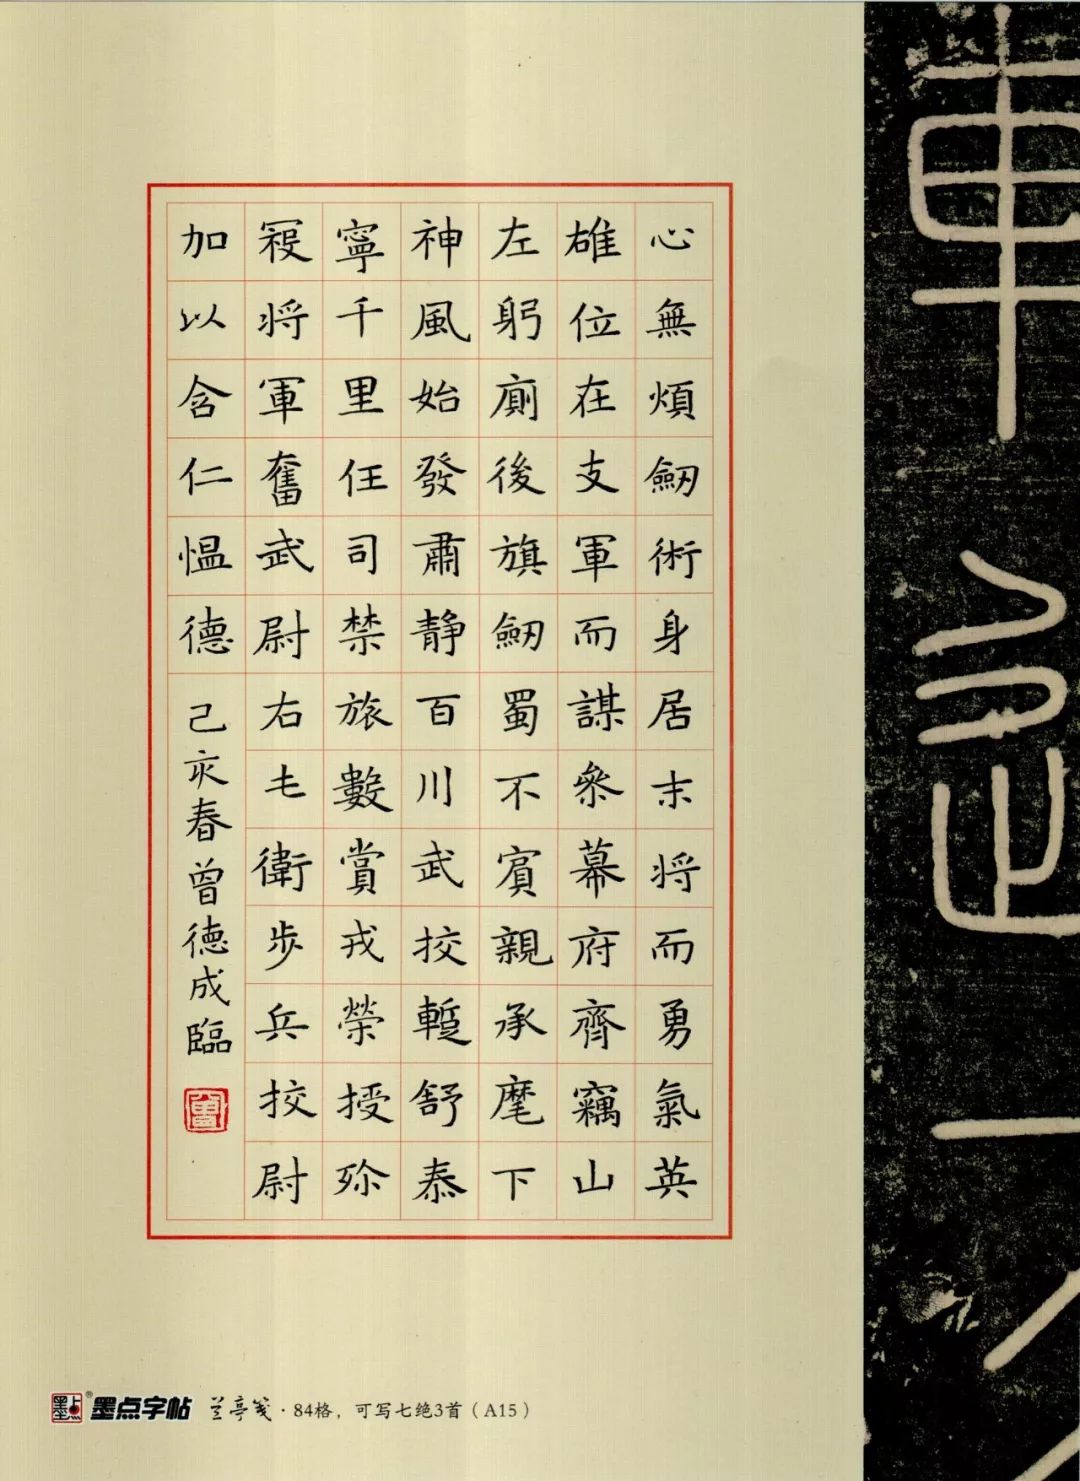 心無煩劒術身居末将而勇氣英
雄位在支軍而謀叅幕府齊竊山
左躬廁後旗劒蜀不賓親承麾下
神風始發肅静百川武挍蹔舒泰
寧千里任司禁旅數賞戎榮授殄
寇将軍奮武尉右毛衛步兵挍尉
加以含仁愠德
己亥春曾德成臨
墨点字帖 兰亭笺·84格，可写七绝3首（A15）